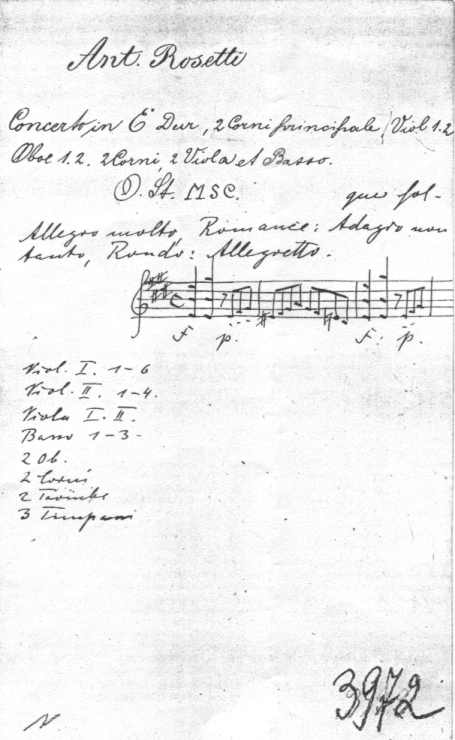 Ant. Rosetti
Concerto in E Dur, 2 Corni principale, Viol 1.2
Oboe 1.2. 2 Corni, 2 Viola et Basso.
O. St. MSC.
Allegro molto, Romance: Adagio non
tanto, Rondo: Allegretto.
F p. F. p.
Viol. I. 1-6
Viol. II. 1-4.
Viola I. II.
Basso 1-3-
2 Ob.
2 Corni
2
3 Timpani
3972